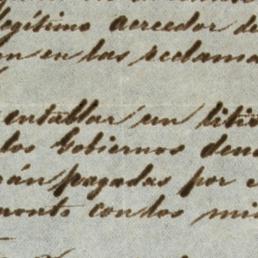 legítimo acreedor de
en las reclama
entablar un liti
los Gobiernos den
rán pagadas por e
monto con los mi